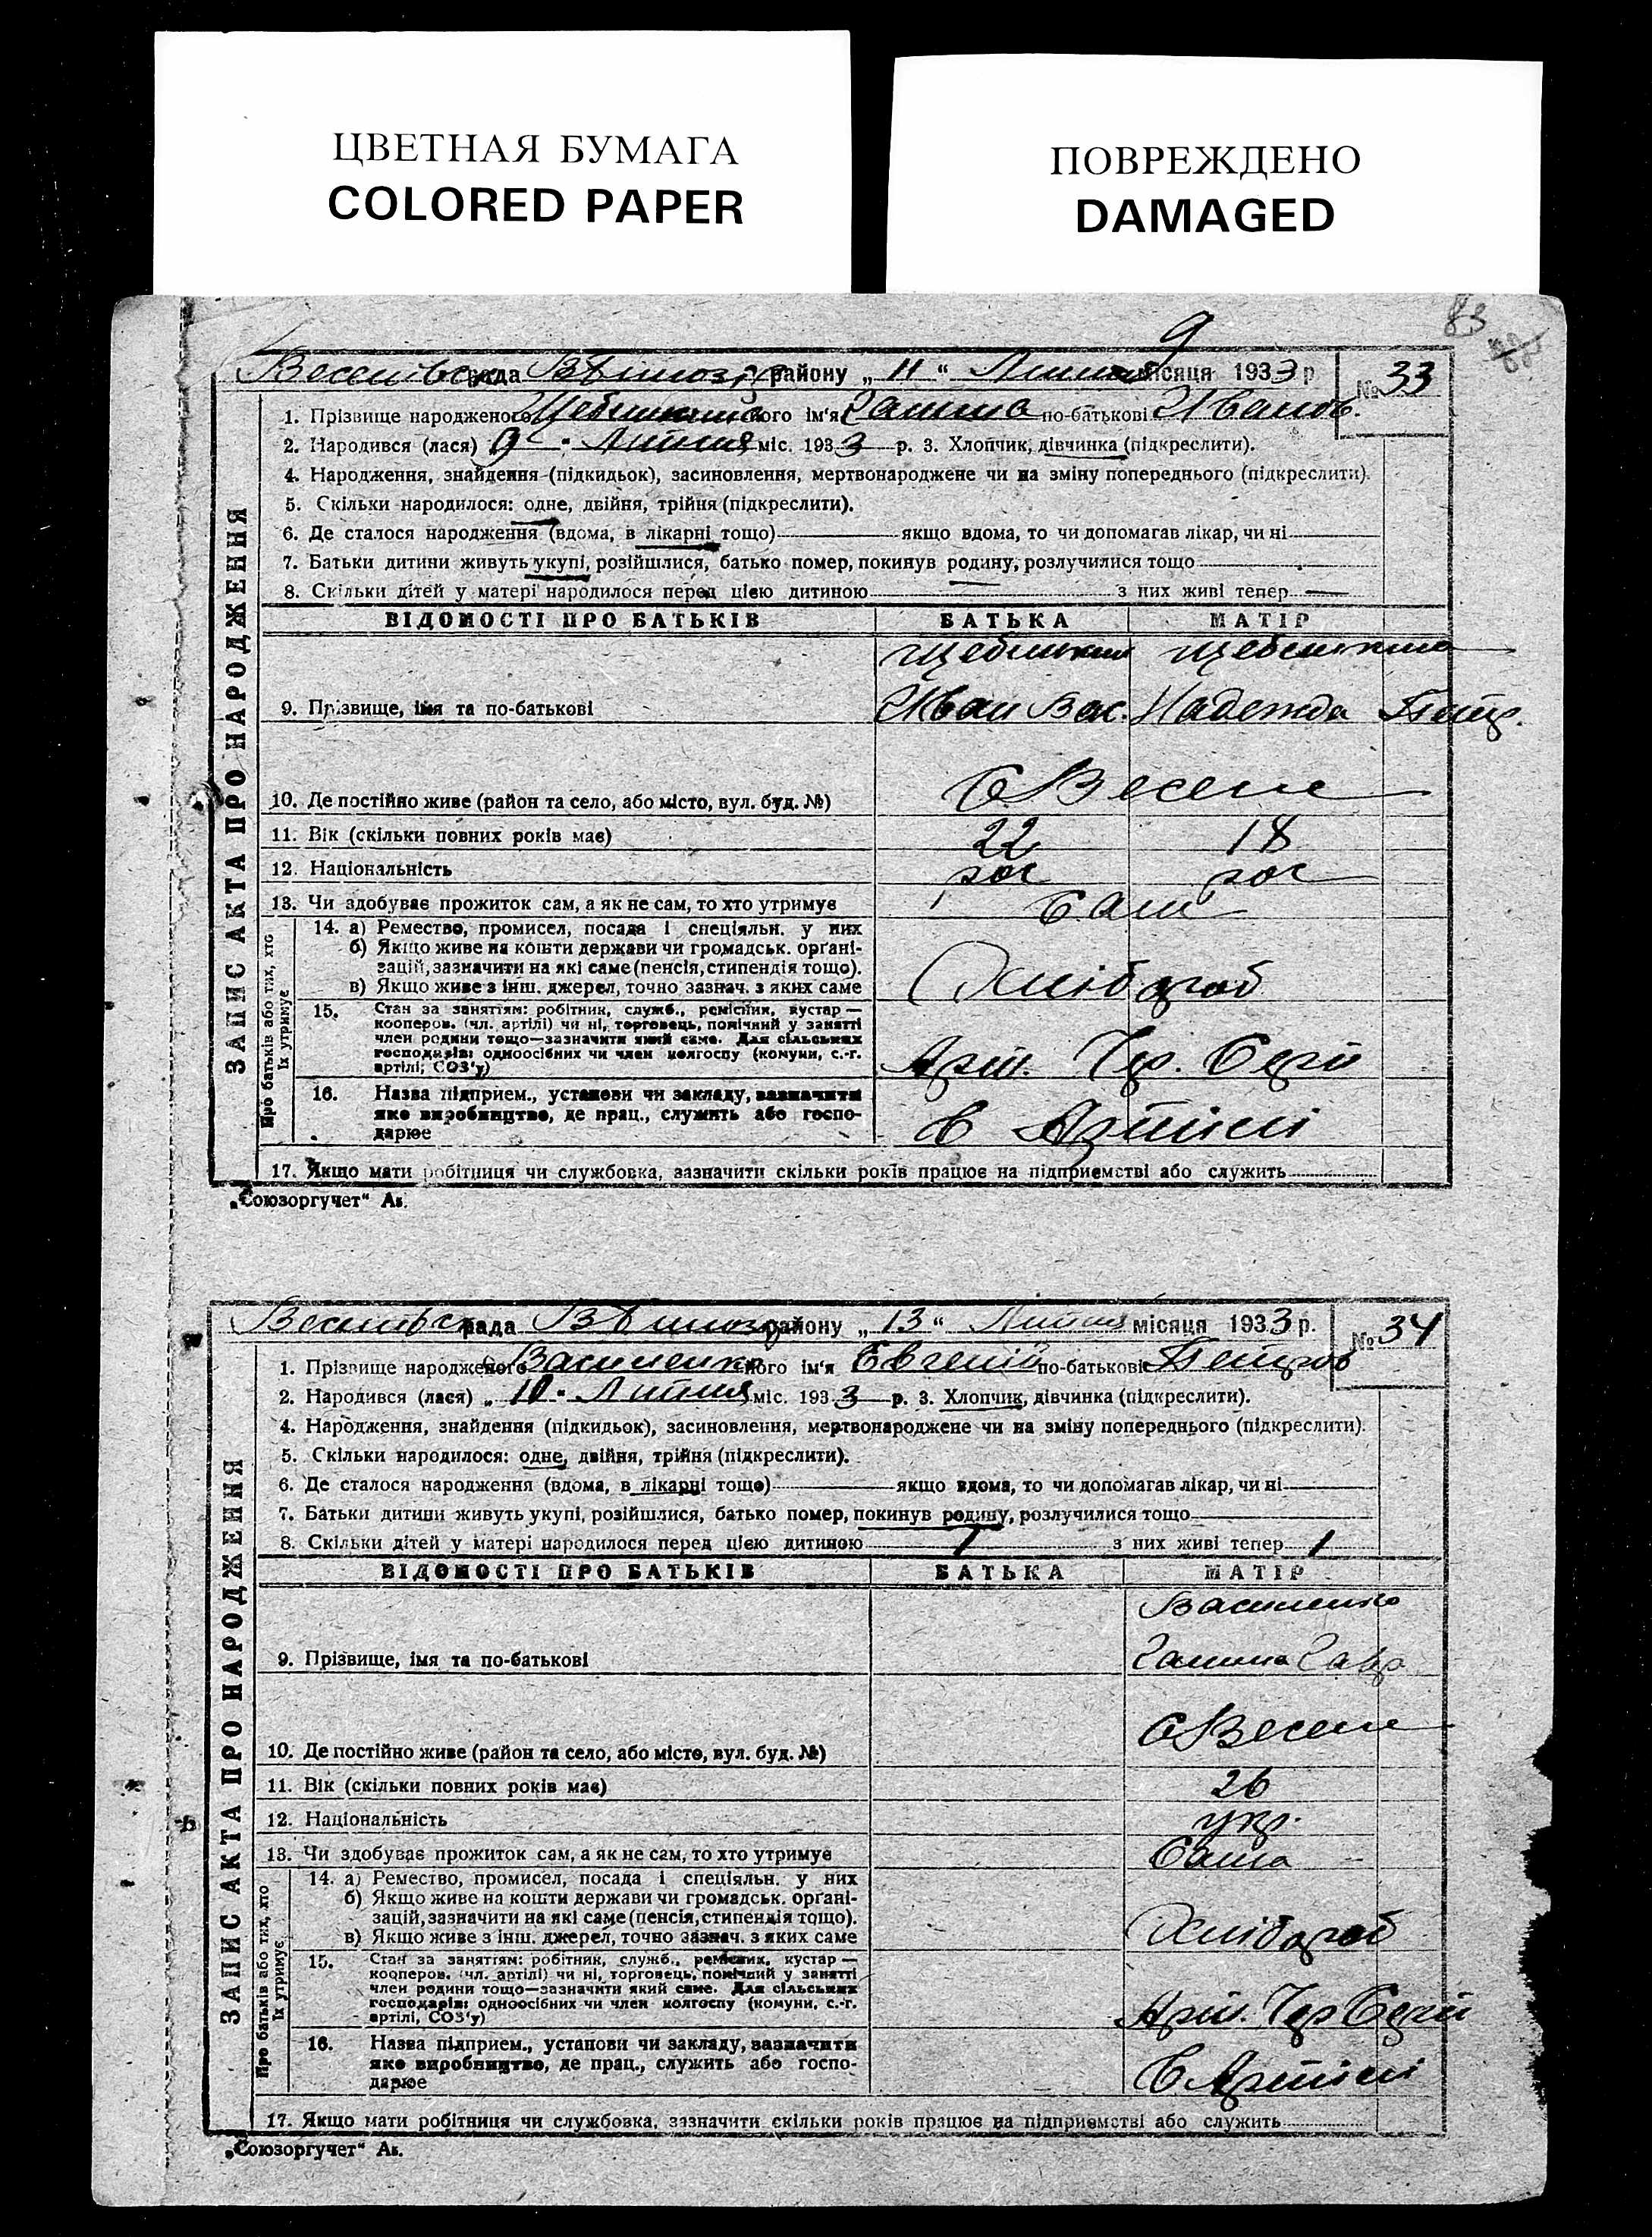 ЦВЕТНАЯ БУМАГА
COLORED PAPER
ПОВРЕЖДЕНО
DAMAGED
9
83
рада району „ 11 “ місяця 1933 р
№ 33
1. Прізвище народженого його ім'я Галина по-батькові Иванов.
2. Народився (лася) 9 Липня міс. 1933 р. 3. Хлопчик, дівчинка (підкреслити).
4. Народження, знайдення (підкидьок), засиновлення, мертвонароджене чи на зміну попереднього (підкреслити).
5. Скільки народилося: одне, двійня, трійня (підкреслити).
6. Де сталося народження (вдома, в лікарні тощо) якщо вдома, то чи допомагав лікар, чи ні
7. Батьки дитини живуть укупі, розійшлися, батько помер, покинув родину, розлучилися тощо
8. Скільки дітей у матері народилося перед цією дитиною з них живі тепер —
ВІДОМОСТІ ПРО БАТЬКІВ БАТЬКА МАТІР
9. Прізвище, імя та по-батькові Иван Вас. Надежда Петр.
10. Де постійно живе (район та село, або місто, вул. буд. №) С Веселе
11. Вік (скільки повних років має) 22 18
12. Національність рос рос
13. Чи здобуває прожиток сам, а як не сам, то хто утримує Сами
14. а) Ремество, промисел, посада і спеціяльн. у них
б) Якщо живе на кошти держави чи громадськ. орґані-
зацій, зазначити на які саме (пенсія, стипендія тощо).
в) Якщо живе з інш. джерел, точно зазнач. з яких саме Хлібороб
15. Стан за заняттям: робітник, служб., ремісник, кустар —
кооперов. (чл. артілі) чи ні, торговець, помічний у занятті
член родини тощо—зазначити який саме. Для сільських
господарів: одноосібних чи член колгоспу (комуни, с.-г.
артілі, СОЗ'у) Арт. Чер.
16. Назва підприєм., установи чи закладу, зазначити
яке виробництво, де прац., служить або госпо-
дарює в Артілі
17. Якщо мати робітниця чи службовка, зазначити скільки років працює на підприємстві або служить
ЗАПИС АКТА ПРО НАРОДЖЕННЯ
Про батьків або тих, хто
їх утримує
„Союзоргучет“ Ак.
рада району „ 13 “ Липня місяця 1933 р.
№ 34
1. Прізвище народженого Василенко його ім'я Євгеній по-батькові Петров
2. Народився (лася) „ 10 “ Липня міс. 1933 р. 3. Хлопчик, дівчинка (підкреслити).
4. Народження, знайдення (підкидьок), засиновлення, мертвонароджене чи на зміну попереднього (підкреслити).
5. Скільки народилося: одне, двійня, трійня (підкреслити).
6. Де сталося народження (вдома, в лікарні тощо) якщо вдома, то чи допомагав лікар, чи ні
7. Батьки дитини живуть укупі, розійшлися, батько помер, покинув родину, розлучилися тощо
8. Скільки дітей у матері народилося перед цією дитиною 1 з них живі тепер 1
ВІДОМОСТІ ПРО БАТЬКІВ БАТЬКА МАТІР
Василенко
9. Прізвище, імя та по-батькові Галина Гавр
10. Де постійно живе (район та село, або місто, вул. буд. №) С Веселе
11. Вік (скільки повних років має) 26
12. Національність укр.
13. Чи здобуває прожиток сам, а як не сам, то хто утримує Сама
14. а) Ремество, промисел, посада і спеціяльн. у них
б) Якщо живе на кошти держави чи громадськ. орґані-
зацій, зазначити на які саме (пенсія, стипендія тощо).
в) Якщо живе з інш. джерел, точно зазнач. з яких саме Хлібороб
15. Стан за заняттям: робітник, служб., ремісник, кустар —
кооперов. (чл. артілі) чи ні, торговець, помічний у занятті
член родини тощо—зазначити який саме. Для сільських
господарів: одноосібних чи член колгоспу (комуни, с.-г.
артілі, СОЗ'у) Арт. Чер
16. Назва підприєм., установи чи закладу, зазначити
яке виробництво, де прац., служить або госпо-
дарює В Артілі
17. Якщо мати робітниця чи службовка, зазначити скільки років працює на підприємстві або служить
ЗАПИС АКТА ПРО НАРОДЖЕННЯ
Про батьків або тих, хто
їх утримує
„Союзоргучет“ Ак.